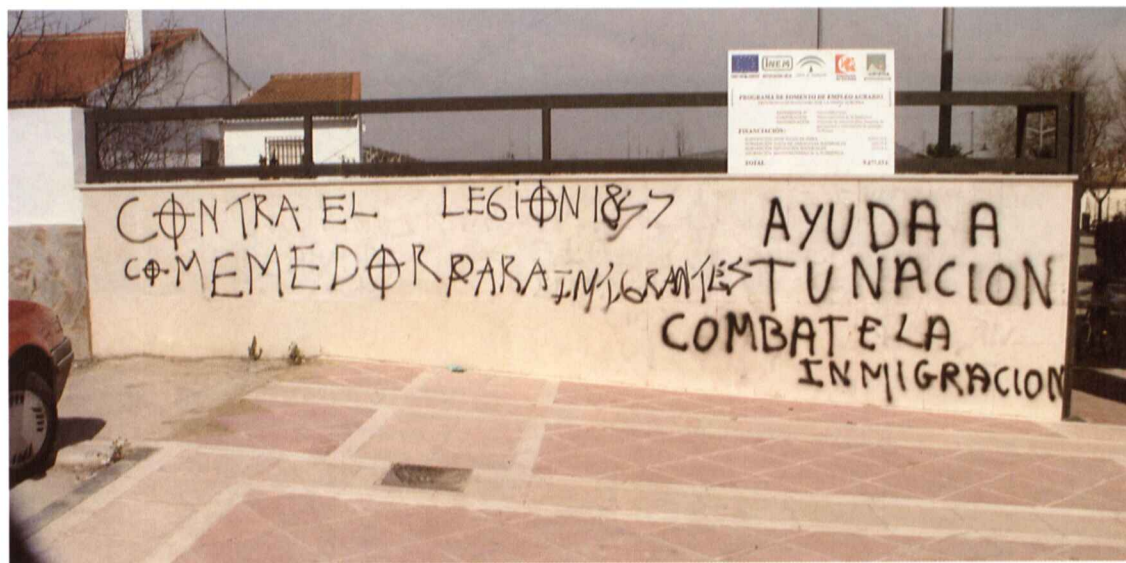 INEM
PROGRAMA DE FOMENTO DE EMPLEO AGRARIO
FINANCIACIÓN:
TOTAL
CONTRA EL LEGION 18
COMEMEDOR PARA INMIGRANTES
AYUDA A
TU NACION
COMBATE LA
INMIGRACION